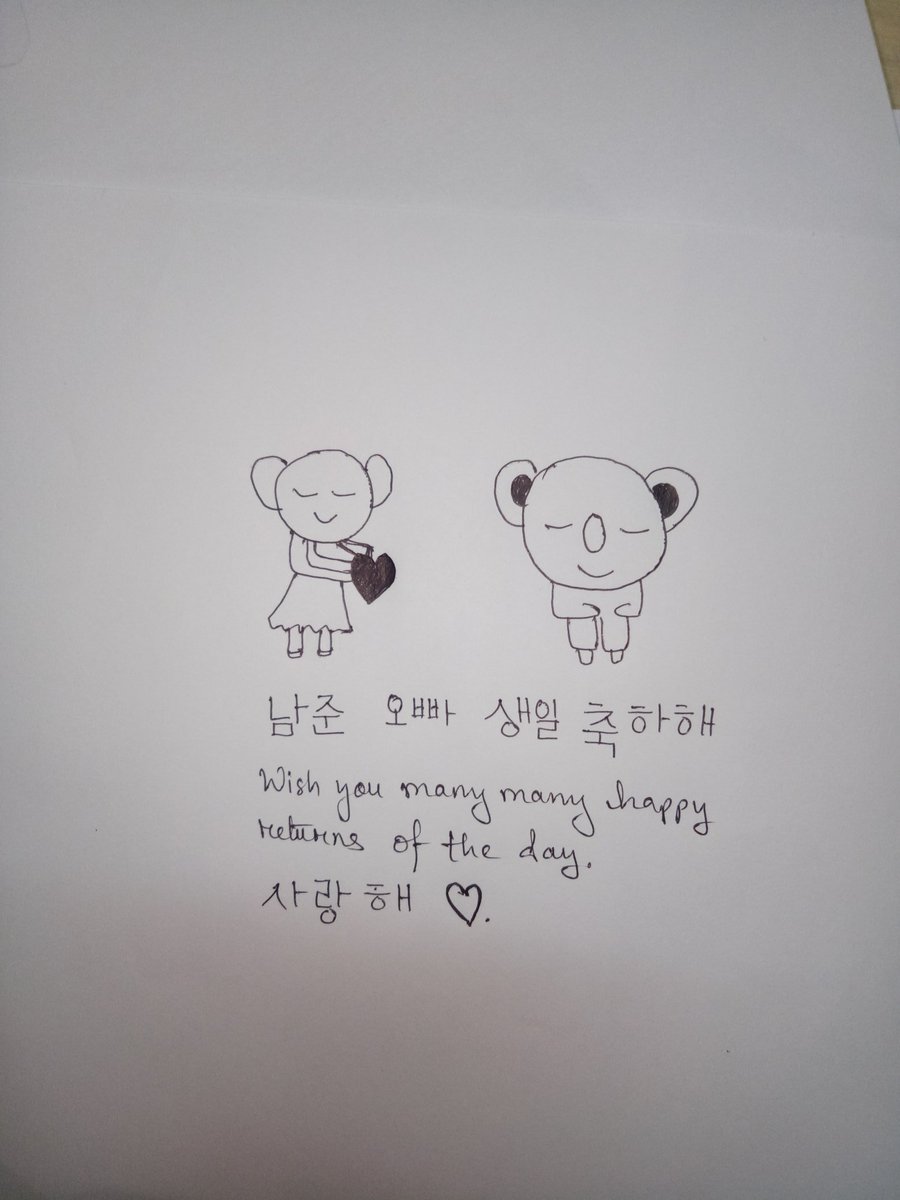 남준 오빠 생일 축하해
Wish you many many happy
returns of the day.
사랑해 ♡.